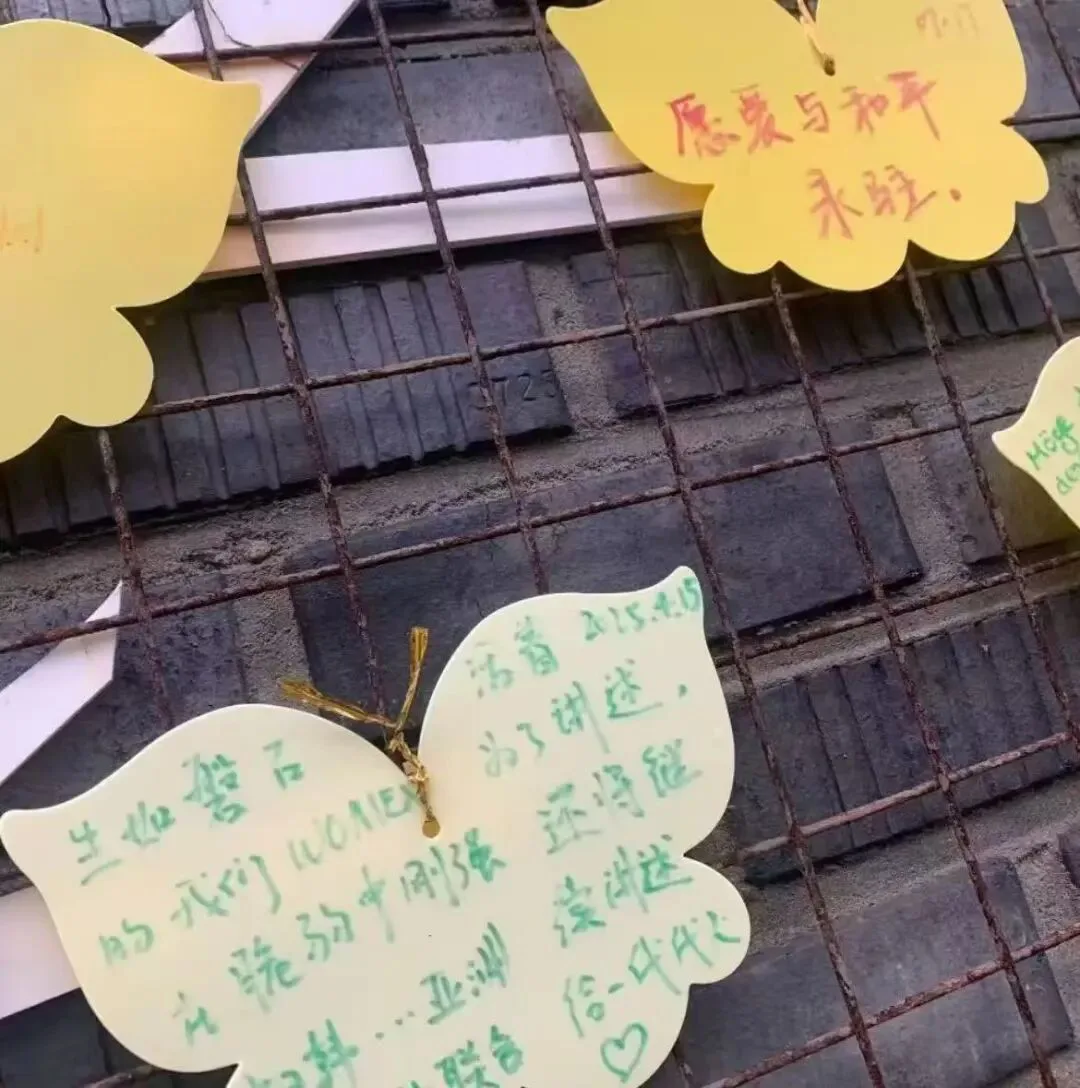 愿爱与和平
永驻.
3723
Möge
生如磐石
的我们 WOMEN
在脆弱中刚强
...亚洲
联合
活着 2025.4.15
为了讲述.
还将继
续讲述
给一代代人
♡